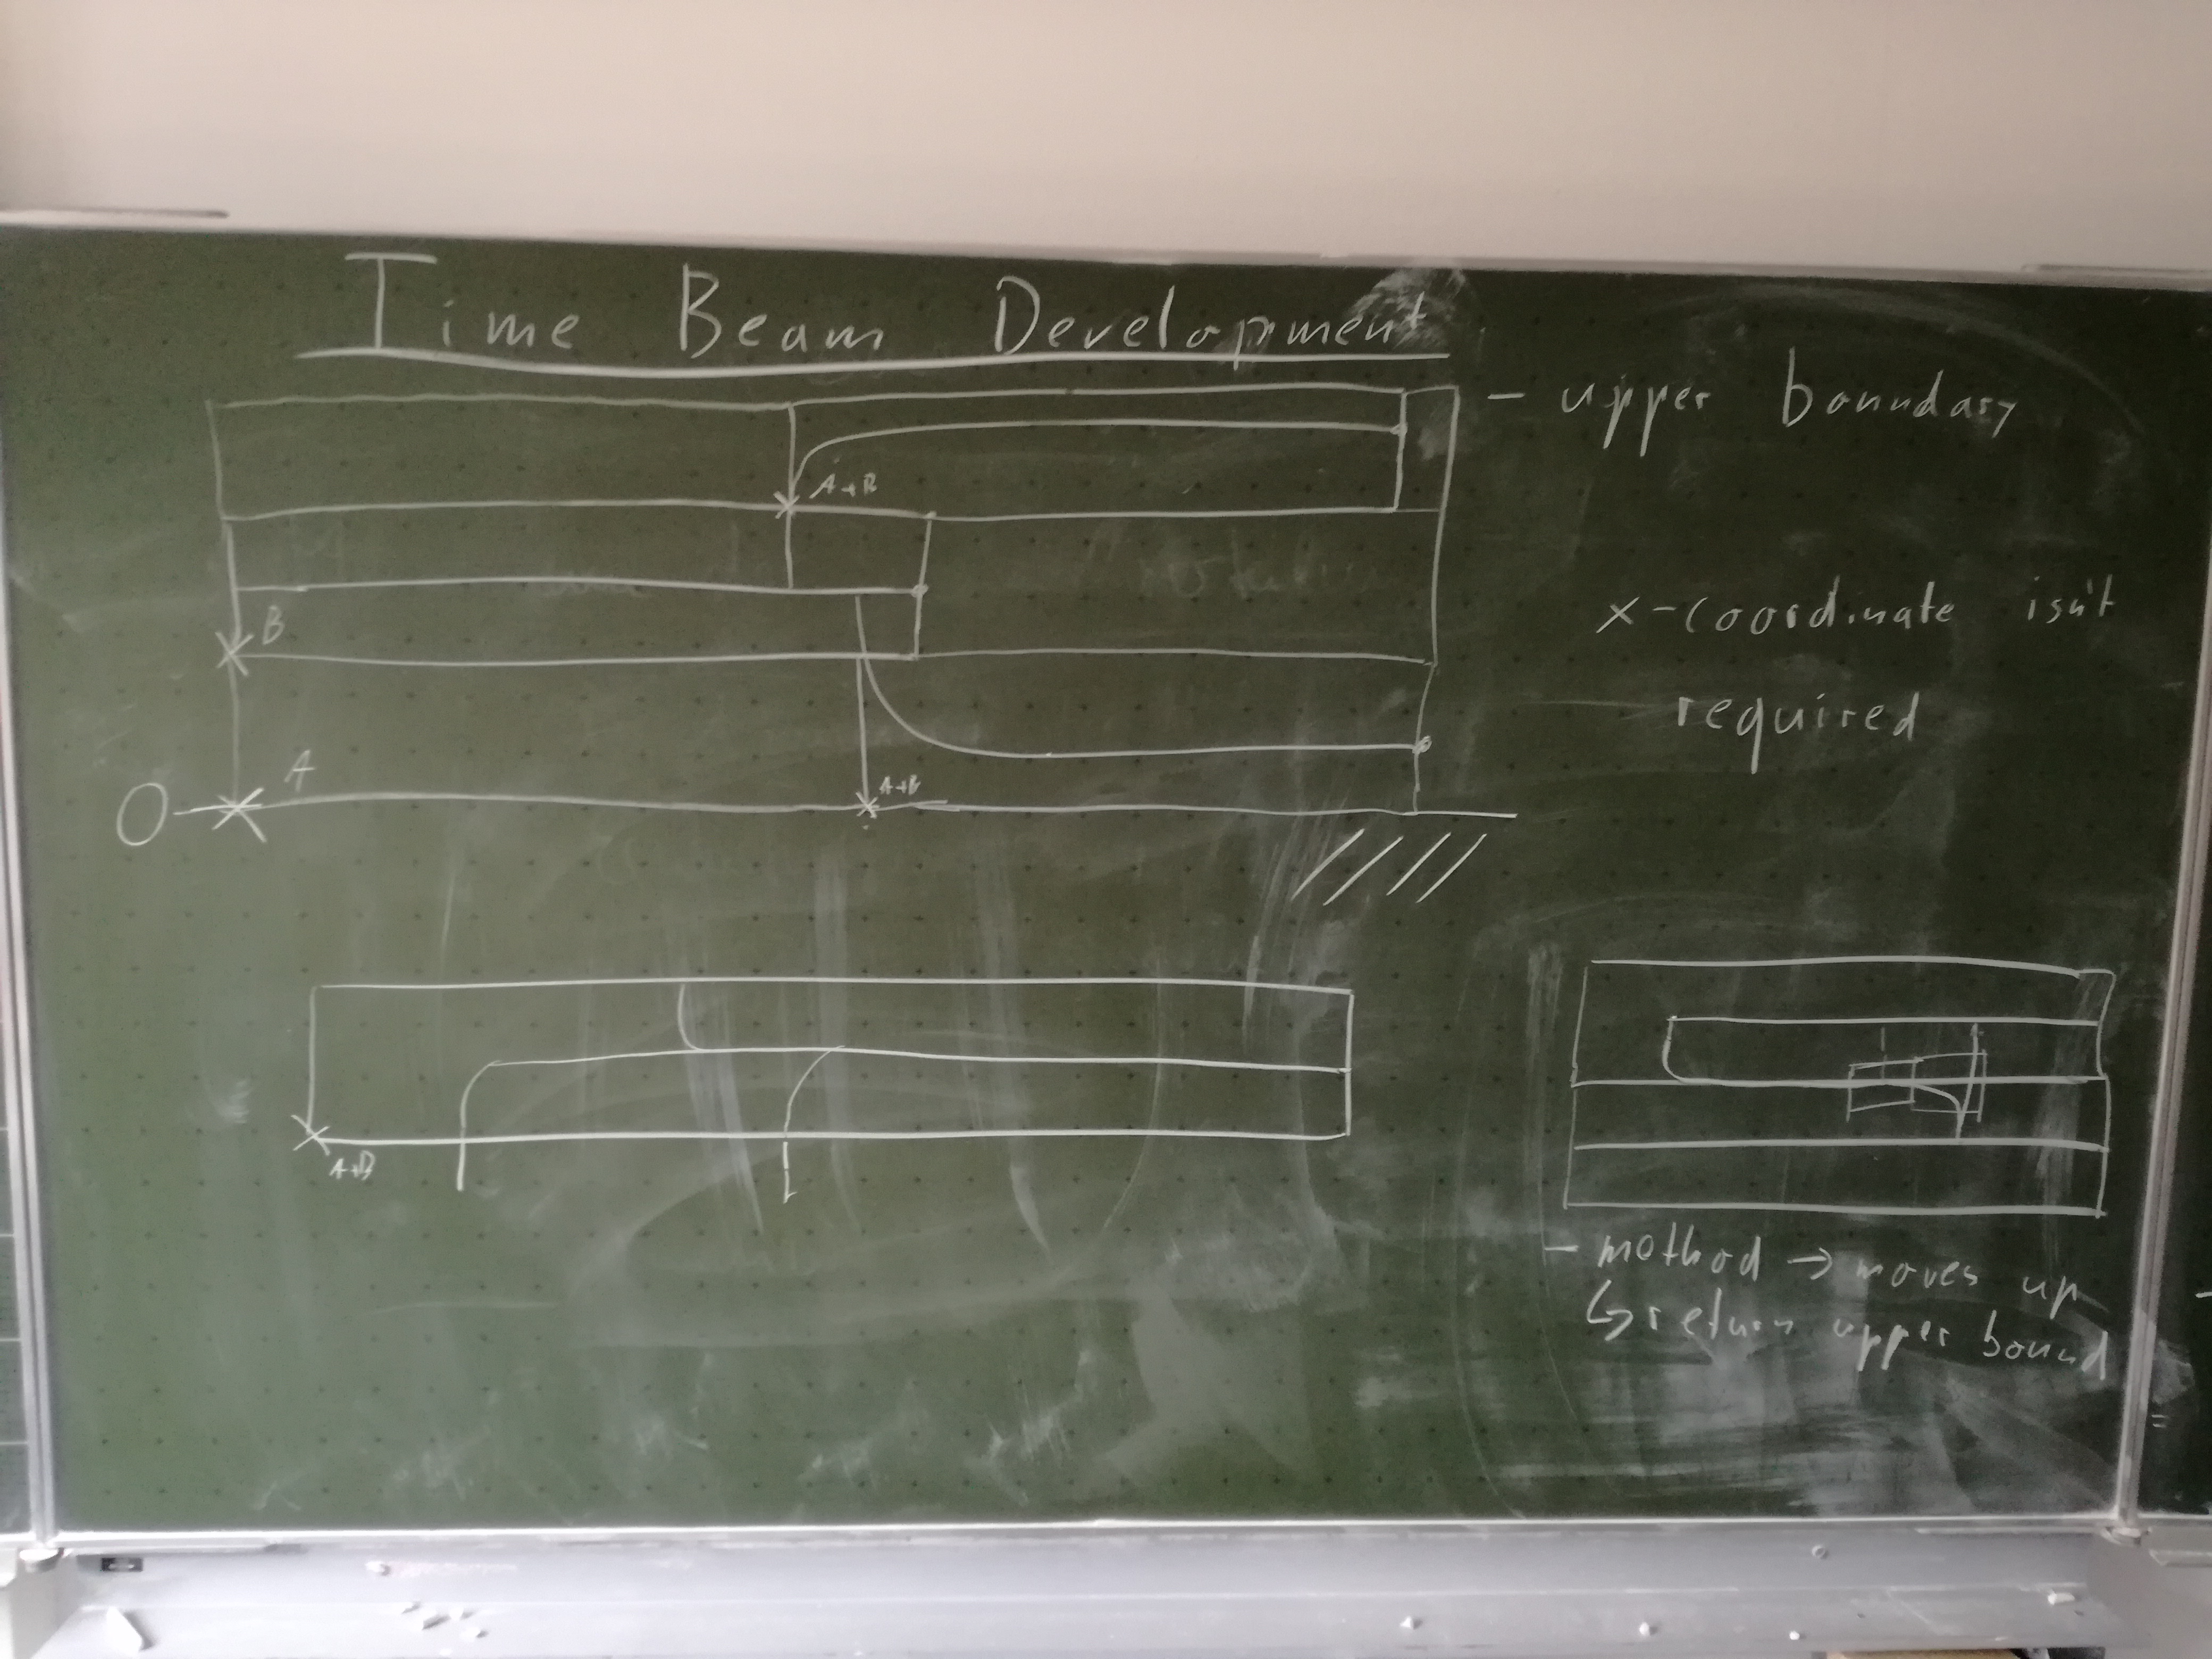 Time Beam Development
- upper boundary
A+B
x-coordinate isn't
B
required
A
O
A+B
A+B
- method → moves up
↳ return upper bound